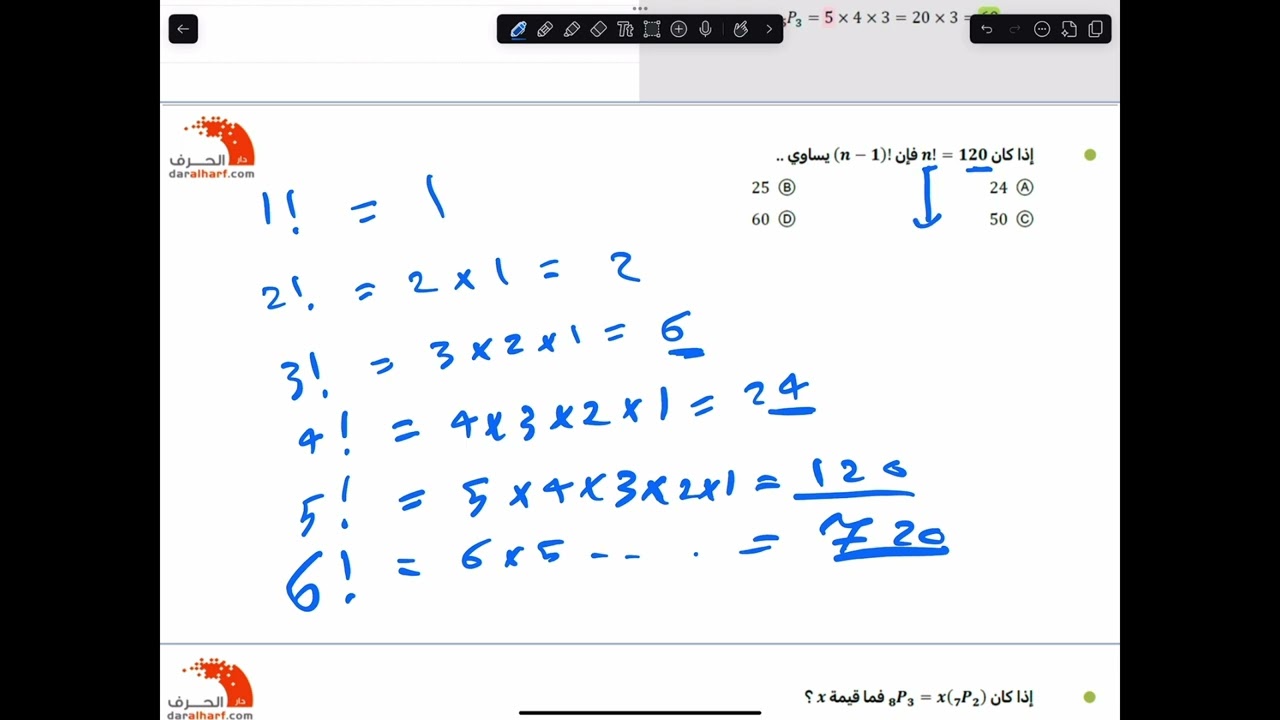 ₅P₃ = 5 × 4 × 3 = 20 × 3 = 60
الحرف دار
daralharf.com
إذا كان n! = 120 فإن (n − 1)! يساوي ..
24 Ⓐ
25 Ⓑ
50 Ⓒ
60 Ⓓ
1! = 1
2! = 2 × 1 = 2
3! = 3 × 2 × 1 = 6
4! = 4 × 3 × 2 × 1 = 24
5! = 5 × 4 × 3 × 2 × 1 = 120
6! = 6 × 5 -- . = 720
الحرف دار
daralharf.com
إذا كان ₈P₃ = x(₇P₂) فما قيمة x ؟